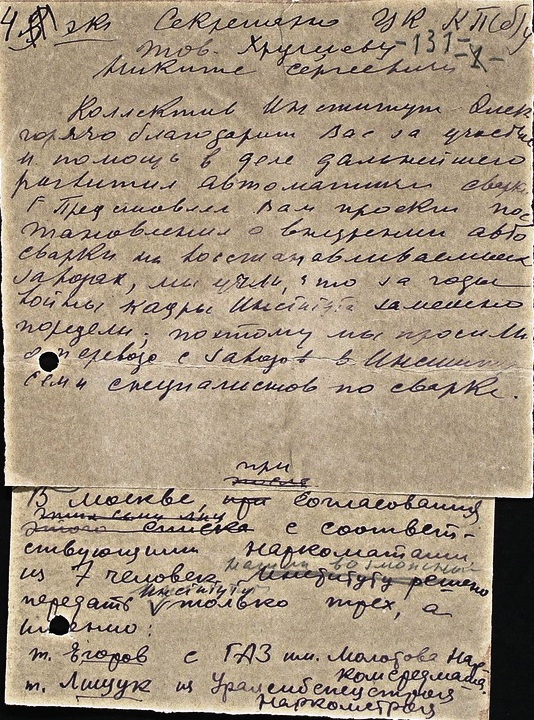 4 экз Секретарю ЦК КП(б)У
тов. Хрущеву -131-
Никите Сергеевичу
Коллектив Института Элек
горячо благодарит Вас за участие
и помощь в деле дальнейшего
развития автоматичной сварк
Представляя Вам проект пос
тановления о внедрении авто
сварки на восстанавливаемых
заводах, мы учли, что за годы
войны кадры Института заметно
поредели; поэтому мы просили
о переводе с заводов в Институт
семи специалистов по сварке.
при
после
В Москве, при согласования
этого списка с соответ-
ствующими наркоматами
нашли возможным
из 7 человек Институту решено
Институту
передать только трех, а
именно:
т. Егоров с ГАЗ им. Молотова Нар-
комсредмаша.
т. Лищук из Уралсибспецстроя
Наркомстроя